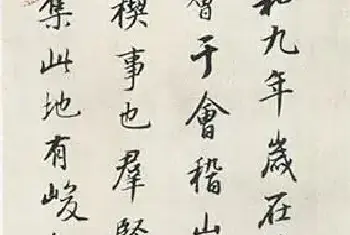 和九年歲在
會于會稽山
禊事也羣賢
集此地有峻